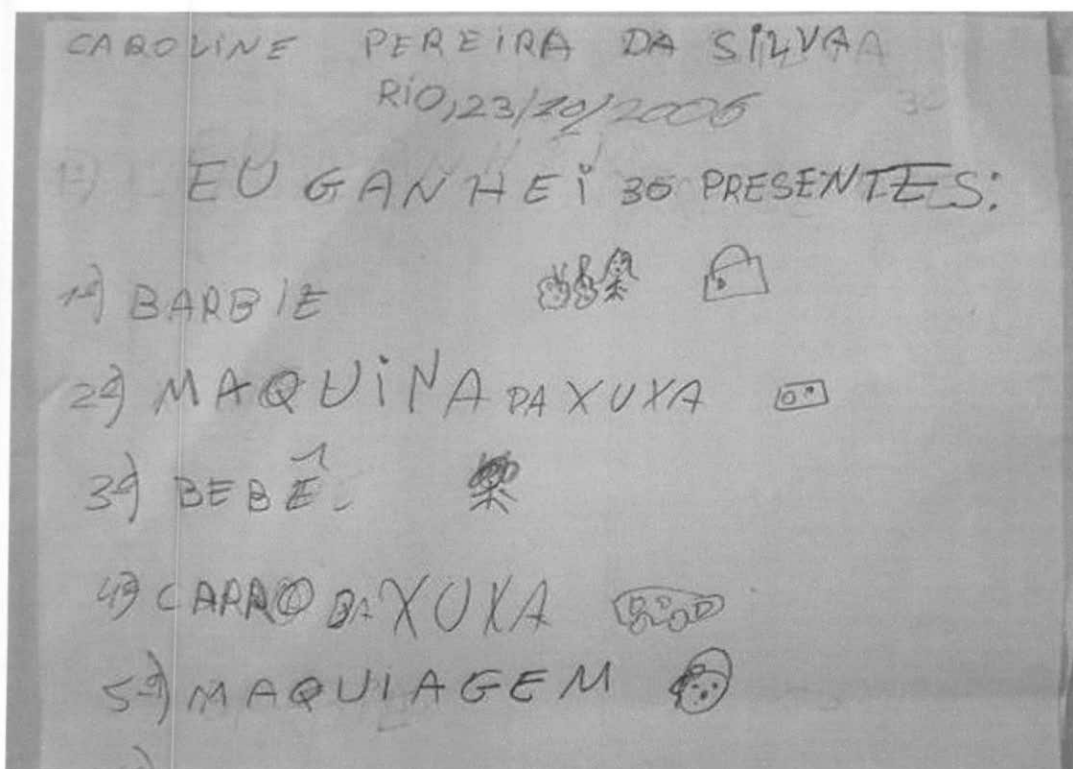 CAROLINE PEREIRA DA SILVAA
RIO, 23/10/2006
EU GANHEI 36 PRESENTES:
1º) BARBIE
2º) MAQUINA DA XUXA
3º) BEBÊ.
4º) CARRO DA XUXA
5º) MAQUIAGEM